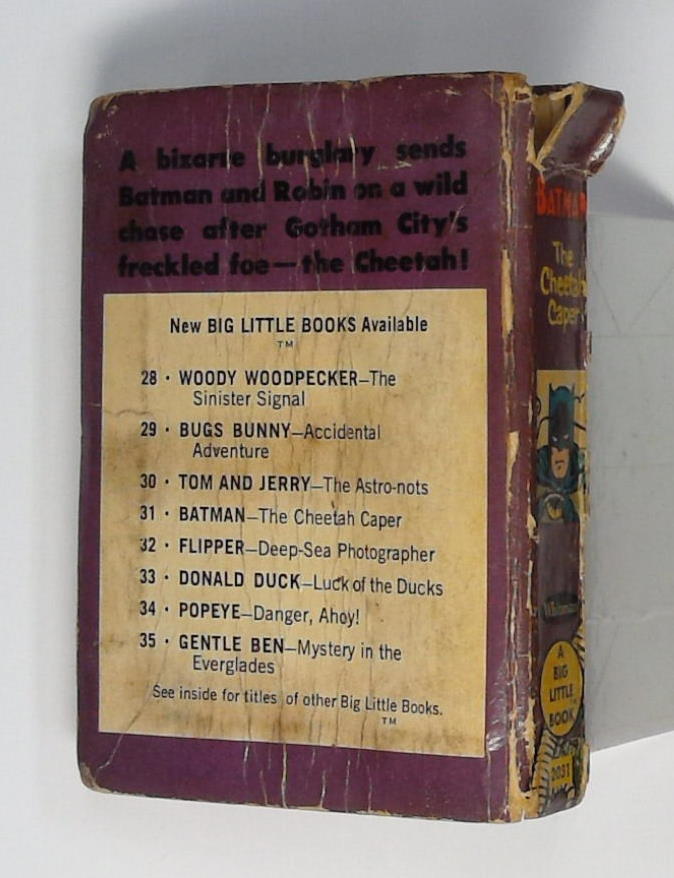 A bizarre burglary sends
Batman and Robin on a wild
chase after Gotham City's
freckled foe—the Cheetah!
New BIG LITTLE BOOKS Available
TM
28 · WOODY WOODPECKER—The
Sinister Signal
29 · BUGS BUNNY—Accidental
Adventure
30 · TOM AND JERRY—The Astro-nots
31 · BATMAN—The Cheetah Caper
32 · FLIPPER—Deep-Sea Photographer
33 · DONALD DUCK—Luck of the Ducks
34 · POPEYE—Danger, Ahoy!
35 · GENTLE BEN—Mystery in the
Everglades
See inside for titles of other Big Little Books.
TM
BATMAN
The
Cheetah
Caper
Whitman
A
BIG
LITTLE
BOOK
2031